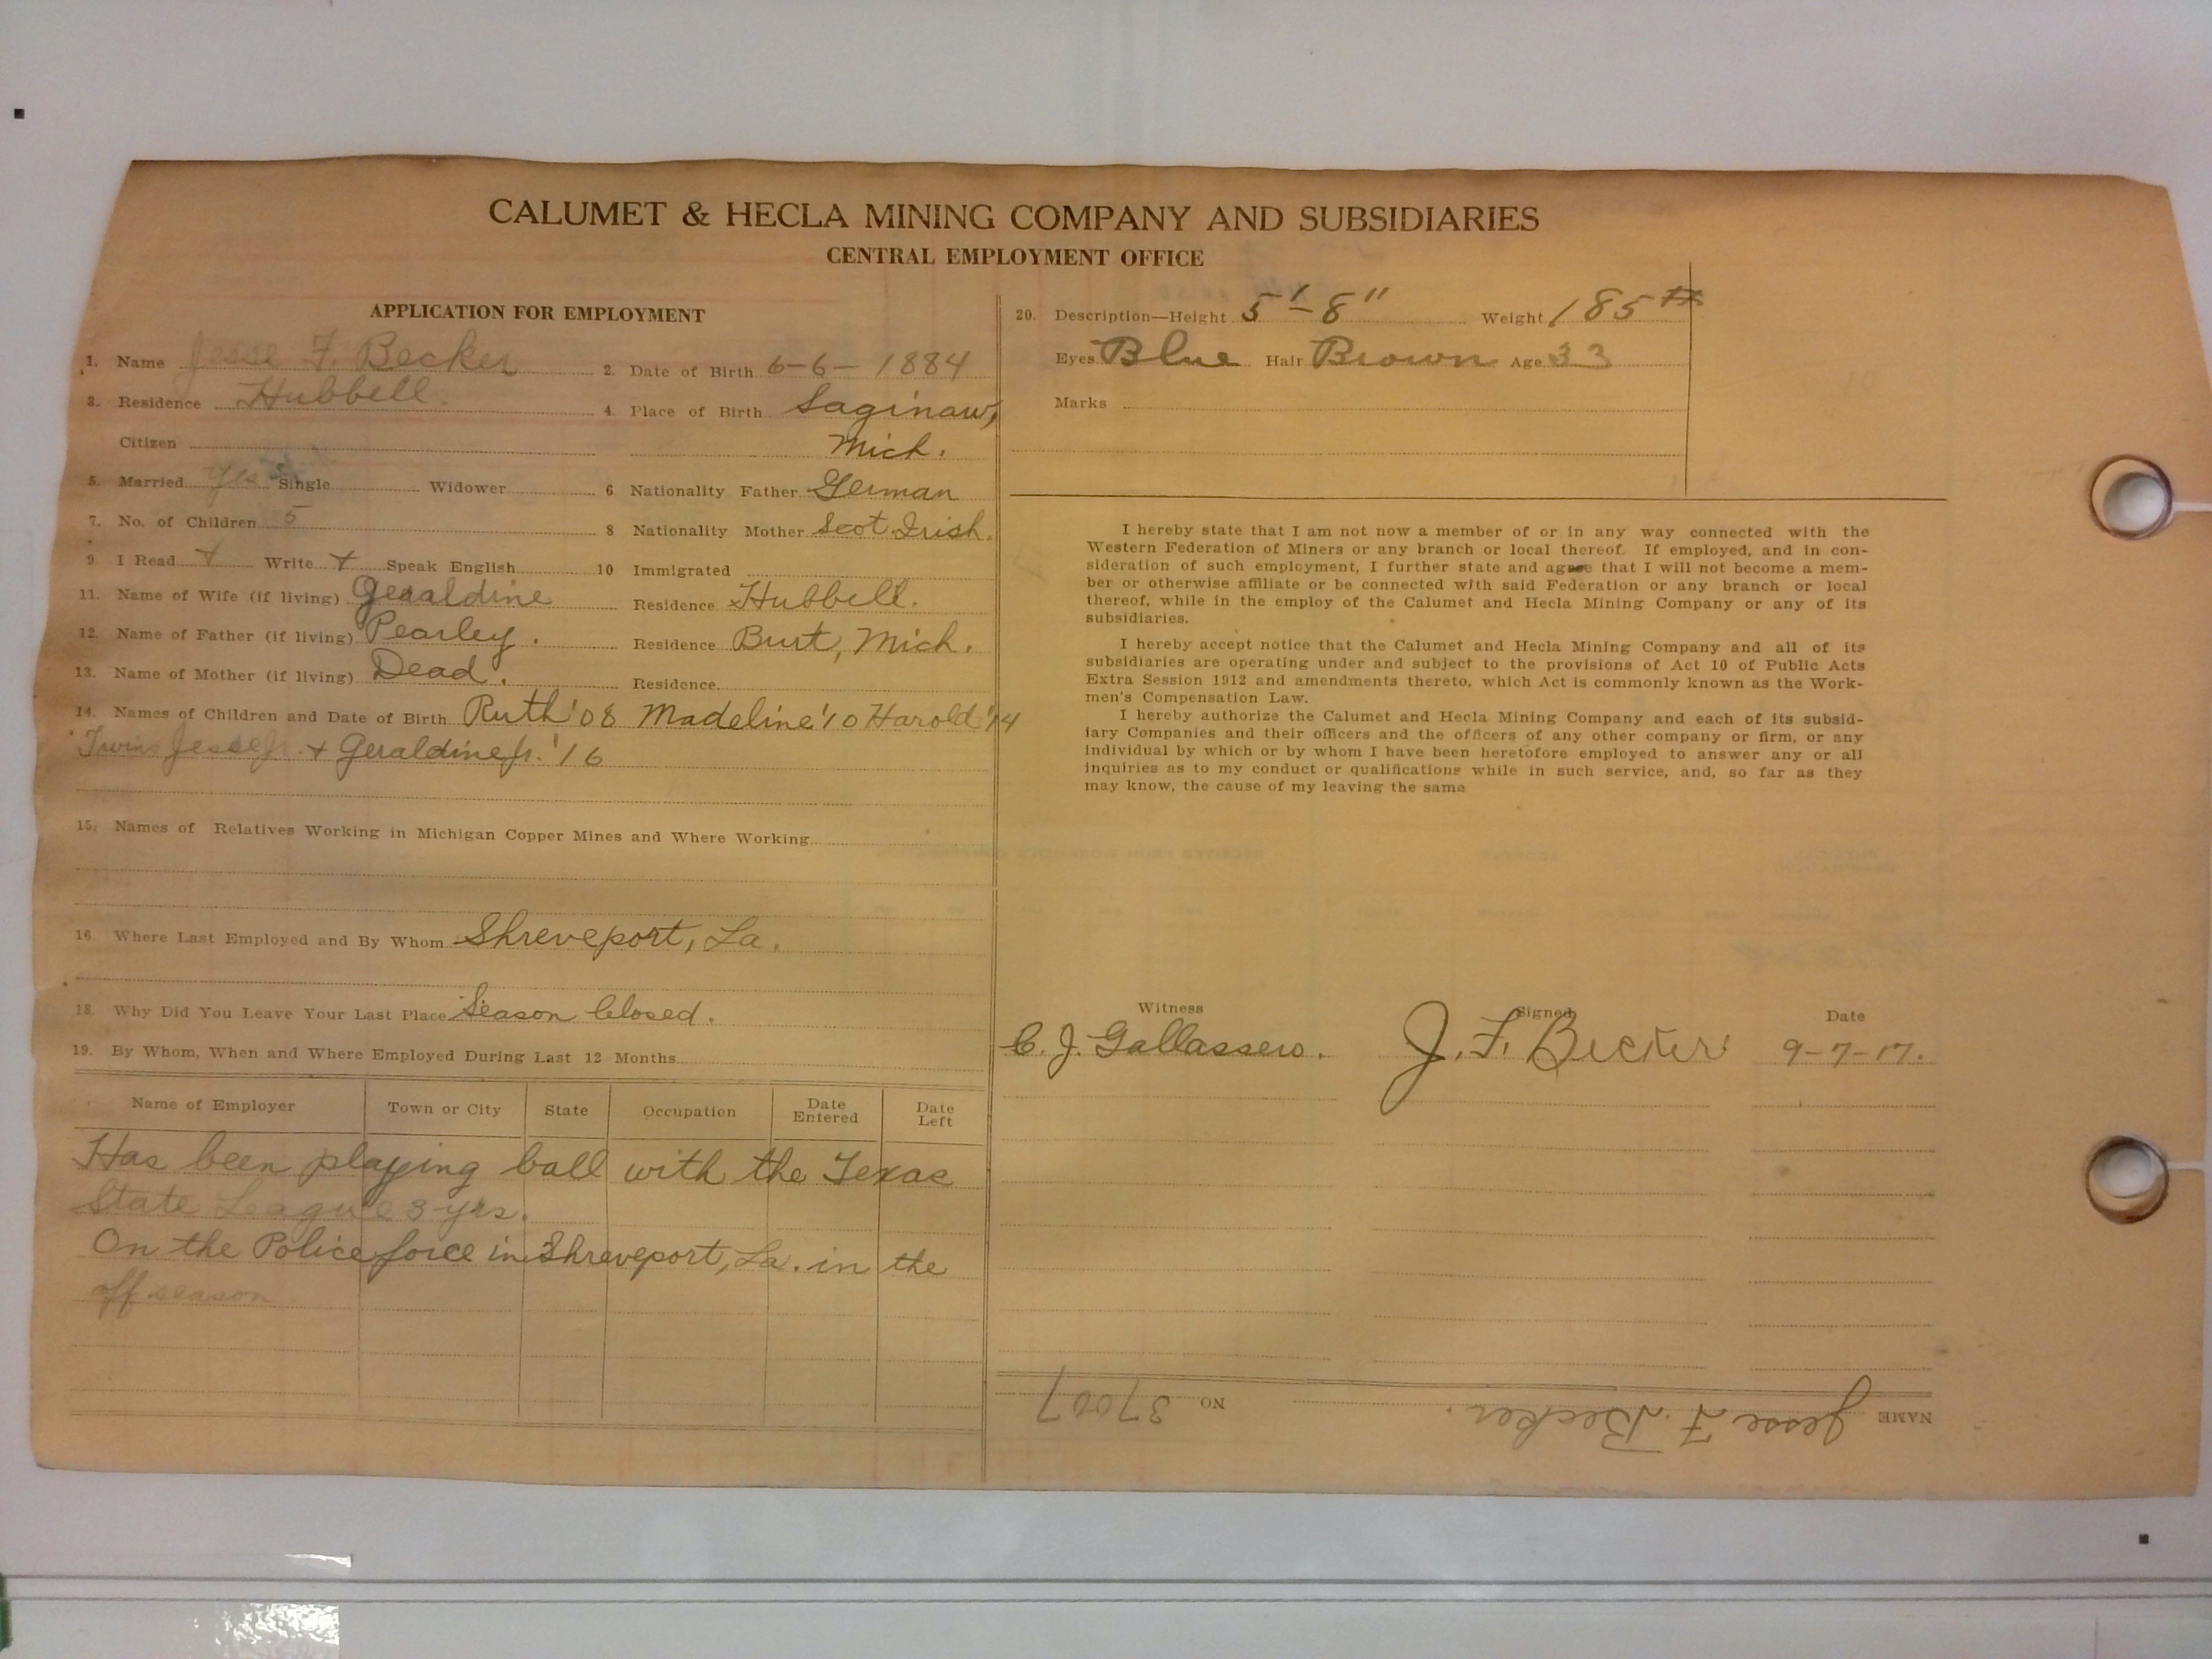 CALUMET & HECLA MINING COMPANY AND SUBSIDIARIES
CENTRAL EMPLOYMENT OFFICE
APPLICATION FOR EMPLOYMENT
1. Name Jesse F. Becker 2. Date of Birth 6-6-1884
3. Residence Hubbell. 4. Place of Birth Saginaw,
Citizen Mich.
5. Married yes Single Widower 6 Nationality Father German
7. No. of Children 5 8 Nationality Mother Scot Irish.
9. I Read + Write + Speak English 10 Immigrated
11. Name of Wife (if living) Geraldine Residence Hubbell.
12. Name of Father (if living) Pearley. Residence Burt, Mich.
13. Name of Mother (if living) Dead. Residence
14. Names of Children and Date of Birth Ruth '08 Madeline '10 Harold '14
Twins Jesse Jr. + Geraldine Jr. '16
15. Names of Relatives Working in Michigan Copper Mines and Where Working
16. Where Last Employed and By Whom Shreveport, La.
18. Why Did You Leave Your Last Place Season Closed.
19. By Whom, When and Where Employed During Last 12 Months
Name of Employer Town or City State Occupation Date Entered Date Left
Has been playing ball with the Texas
State League 3 yrs.
On the Police force in Shreveport, La. in the
off season
20. Description—Height 5'-8" Weight 185 #
Eyes Blue Hair Brown Age 33
Marks
I hereby state that I am not now a member of or in any way connected with the
Western Federation of Miners or any branch or local thereof. If employed, and in con-
sideration of such employment, I further state and agree that I will not become a mem-
ber or otherwise affiliate or be connected with said Federation or any branch or local
thereof, while in the employ of the Calumet and Hecla Mining Company or any of its
subsidiaries.
I hereby accept notice that the Calumet and Hecla Mining Company and all of its
subsidiaries are operating under and subject to the provisions of Act 10 of Public Acts
Extra Session 1912 and amendments thereto, which Act is commonly known as the Work-
men's Compensation Law.
I hereby authorize the Calumet and Hecla Mining Company and each of its subsid-
iary Companies and their officers and the officers of any other company or firm, or any
individual by which or by whom I have been heretofore employed to answer any or all
inquiries as to my conduct or qualifications while in such service, and, so far as they
may know, the cause of my leaving the same
Witness Signed Date
C. J. Gallassero. J. F. Becker 9-7-17.
NAME Jesse F. Becker. NO 37007